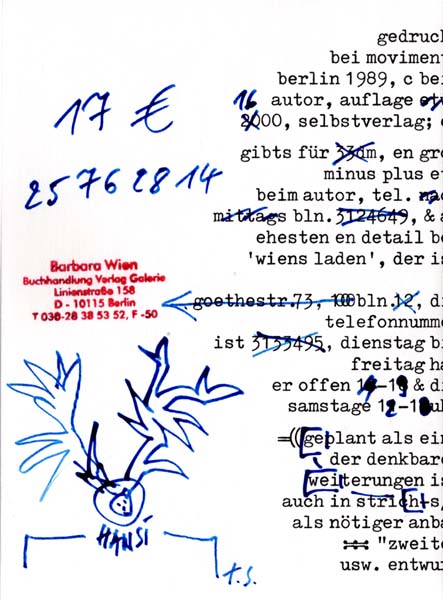 17 €
25 76 28 14
Barbara Wien
Buchhandlung Verlag Galerie
Linienstraße 158
D - 10115 Berlin
T 030-28 38 53 52, F -50
HANSI
t.s.
gedruc
bei movimen
berlin 1989, c bei
16 autor, auflage
2000, selbstverlag;
gibts für 33dm, en gro
minus plus et
beim autor, tel.
mittags bln. 3124649, &
ehesten en detail be
'wiens laden', der is
goethestr.73, 100 bln.12, di
telefonnumme
ist 3133495, dienstag bi
freitag ha
er offen 14-19 & di
samstage
=((geplant als ein
der denkbare
weiterungen is
auch in strichs,
als nötiger anba
"zweite
usw. entwu